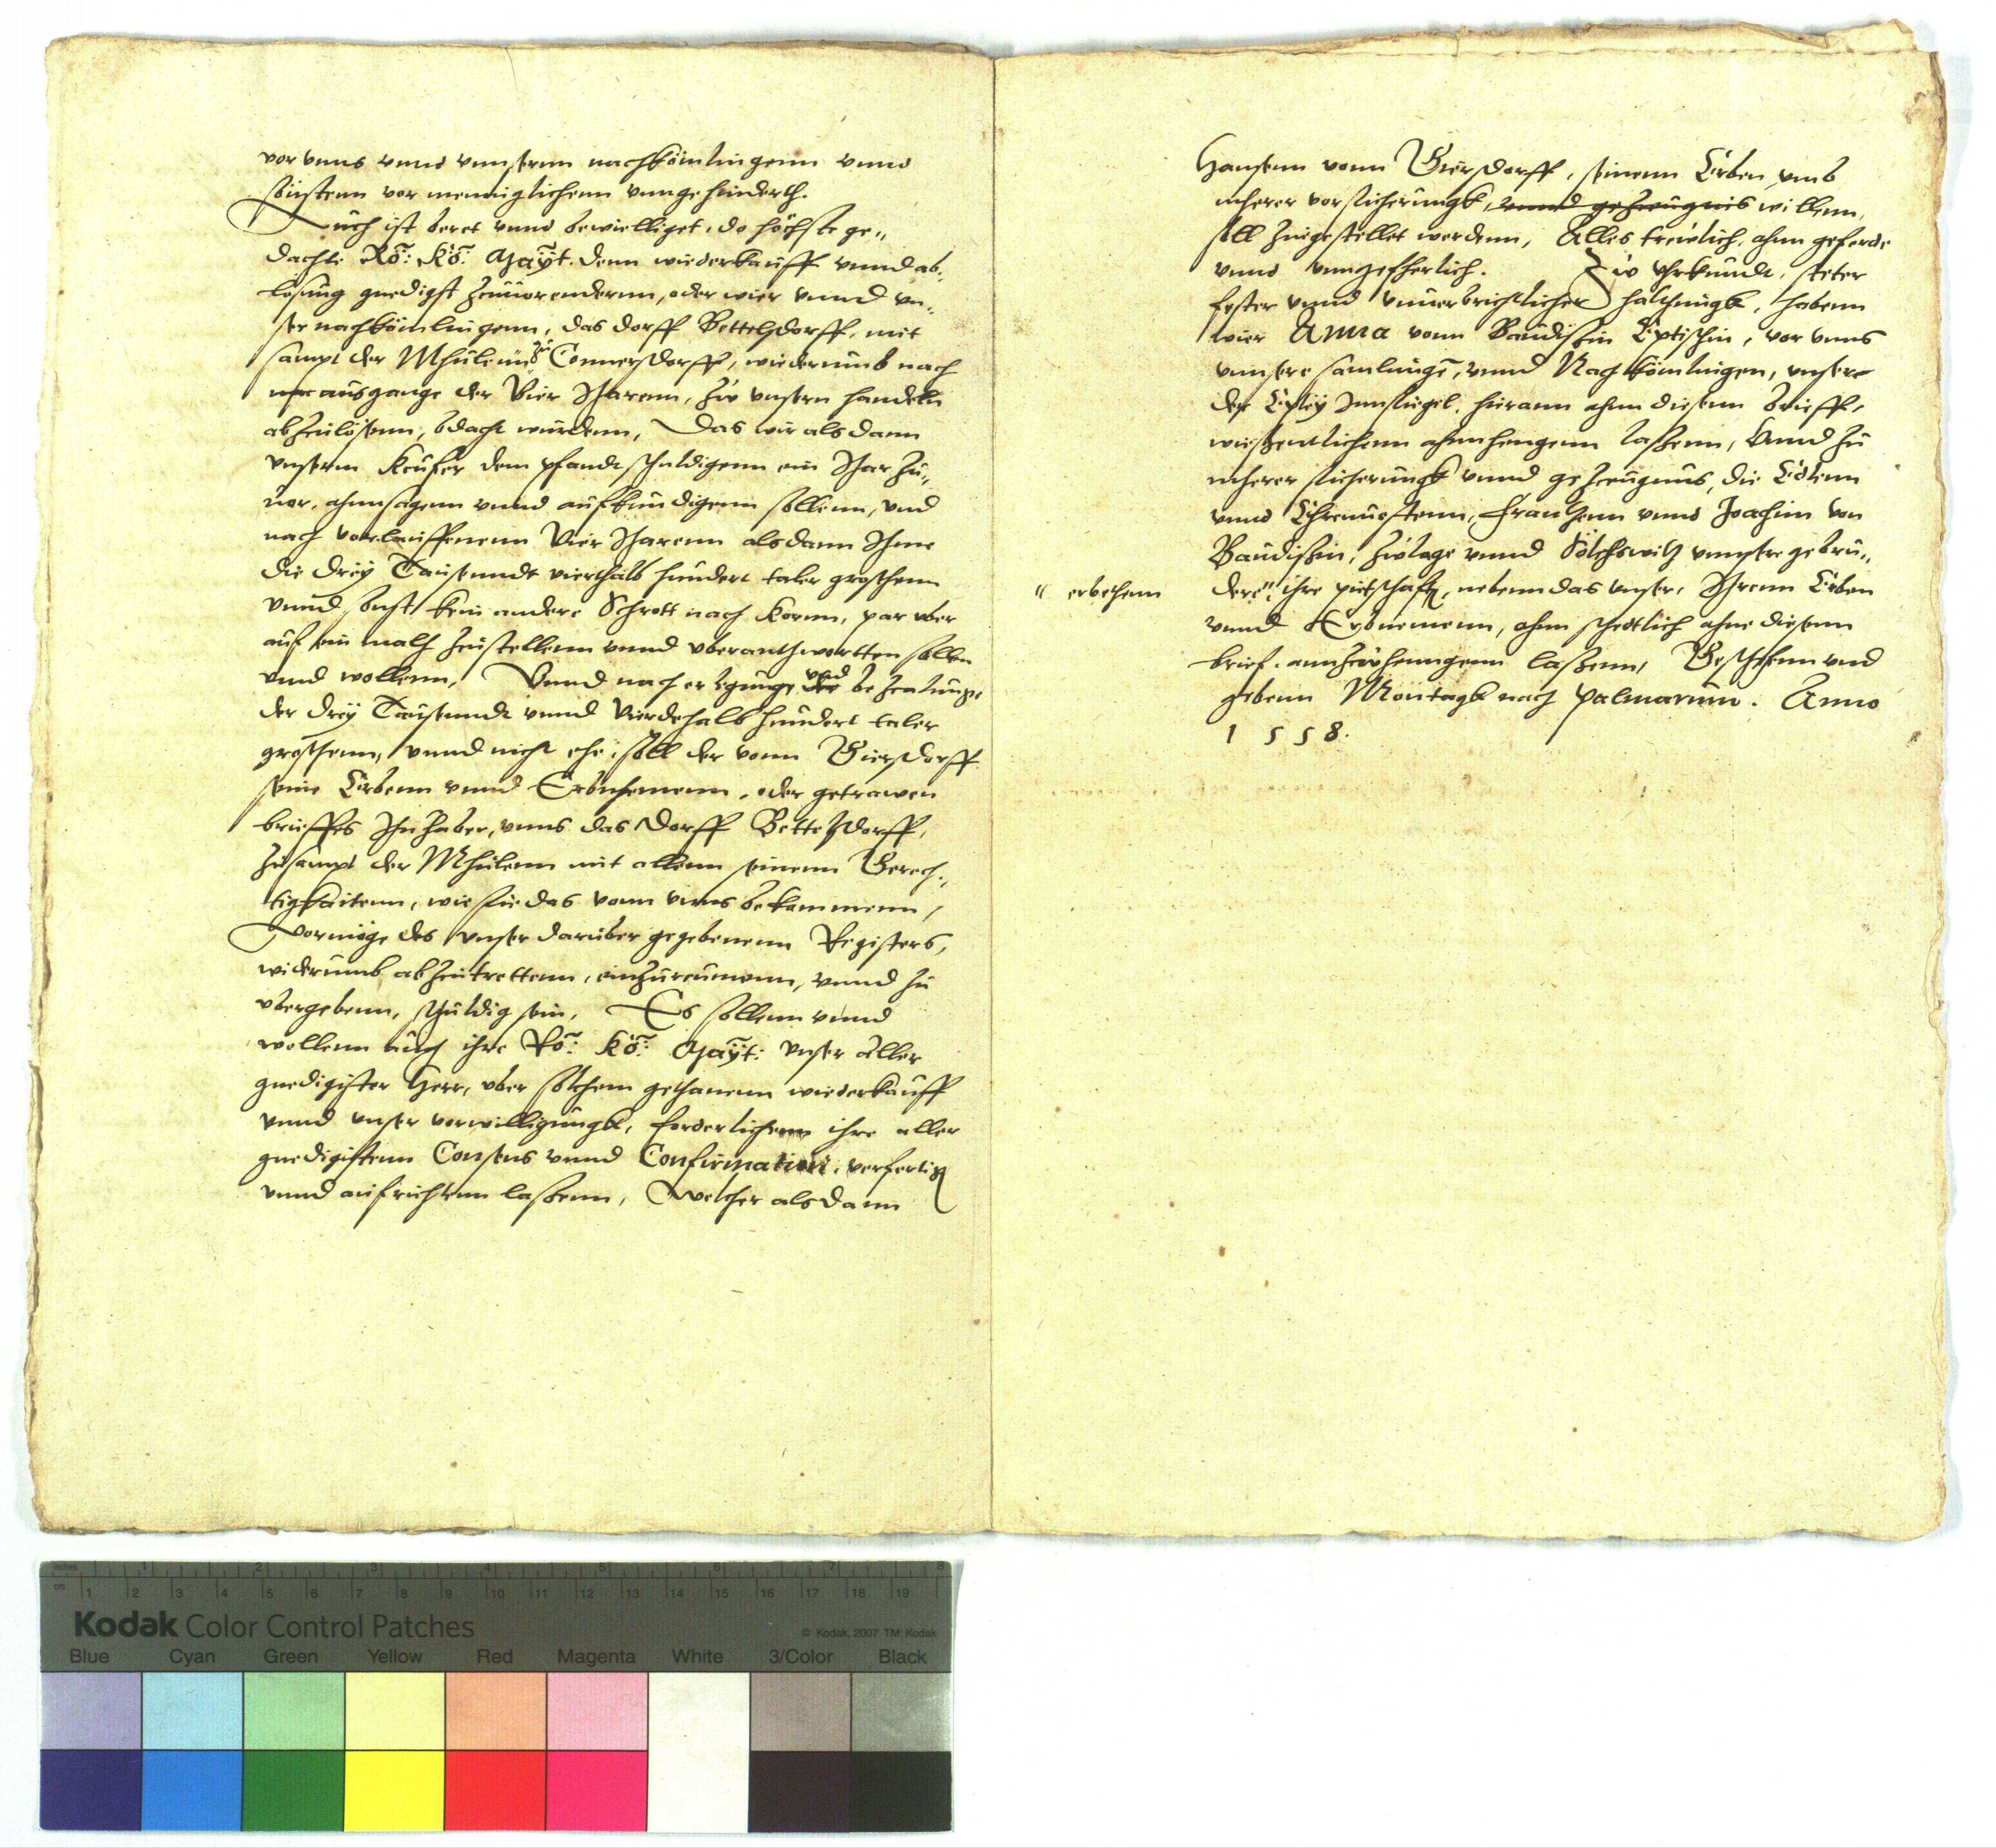 vor vnns vnnd vnnsernn nachkömlingenn vnnd
sönstenn vor menniglichenn vnngehinderth.
Auch ist beret vnnd bewielliget, do höchste ge„
dachte Rö: Kö: Mayt. denn wiederkauff vnnd ab„
losung gnedigst zuuorendernn, oder wier vnnd vn„
ser nachkömlingenn, das dorff Bettelsdorff, mit
sampt der Mhulenn zu Connersdorff, wiederumb nach
ausgange der Vier Jharenn, zw vnsern handeln
abzulösenn, bdacht wurdenn, Das wir als dann
vnserm Keufer dem pfandtschuldigenn ein Jhar zu„
uor, ahnsagenn vnnd aufkundigenn sollenn, vnd
nach vorlauffenenn Vier Jharenn als dann Ihme
die drey Tausenndt vierthalb hundert taler groschenn
vnnd sonst kein andere Schrott nach Kornn, par vber
auf ein malh zustellenn vnnd vberanthwortten sollen
vnnd wollenn, Vnnd nach erlegunge vnd bezcalunge
der drey Tausenndt vnnd Vierdehalb hundert taler
groschenn, vnnd nicht ehe, soll der vonn Giersdorff
seine Erbenn vnnd Erbnhemenn, oder getrawen
brieffes Ihnhaber, vnns das Dorff Bettelsdorff,
zusampt der Mhulenn mit allenn seinenn Gerech„
tigkaitenn, wie sie das vonn vnns bekommenn,
Vormöge des vnser daruber gegebenenn Registers,
widerumb abzutrettenn, einzureumenn, vnnd zu
vbergebenn, schuldig sein, Es sollenn vnnd
wollenn auch ihre Rö: Kö: Mayt: vnser aller
gnedigister Herr, vber solchem gethanenn wiederkauff
vnnd vnser vorwilligungk, forderlichenn ihre aller
gnedigistenn Consens vnnd Confirmation, verfertig
vnnd aufrichtenn lassenn, Welcher als dann
Hansenn vonn Giersdorff, seinenn Erben vmb
mherer vorsicherungk, vnnd gezeugnis willenn,
soll zugestellet werdenn, Alles treulich, ahnn geferde
vnnd vnngeferlich. Zw vhrkundt, steter
fester vnnd vnuerbrichtlicher halthungk, habenn
wier Anna vonn Baudissin Eptischin, vor vnns
vnnsere samlunge, vnnd Nachkömlingen, vnsere
der Eptey Innsiegel, hierann ahnn diesenn brieff,
wissentlichenn ahnnhengenn lassenn, Vnnd zu
mherer sicherungk vnnd gezeugnus, die Edlenn
vnnd Ehrnuestenn, Franzenn vnnd Joachim von
Baudissin, zwlage vnnd Sölchswitz vnnsere gebru„
“ erbethenn dere“ ihre pittschafft, nebenn das vnser, Ihrenn Erben
vnnd Erbnemenn, ahnn schedtlich ahne diesenn
brief. annzwhenngenn lassenn, Geschehenn vnd
gebenn Montagk nach palmarum. Anno
1 5 5 8.
Kodak Color Control Patches
© Kodak, 2007 TM: Kodak
Blue Cyan Green Yellow Red Magenta White 3/Color Black